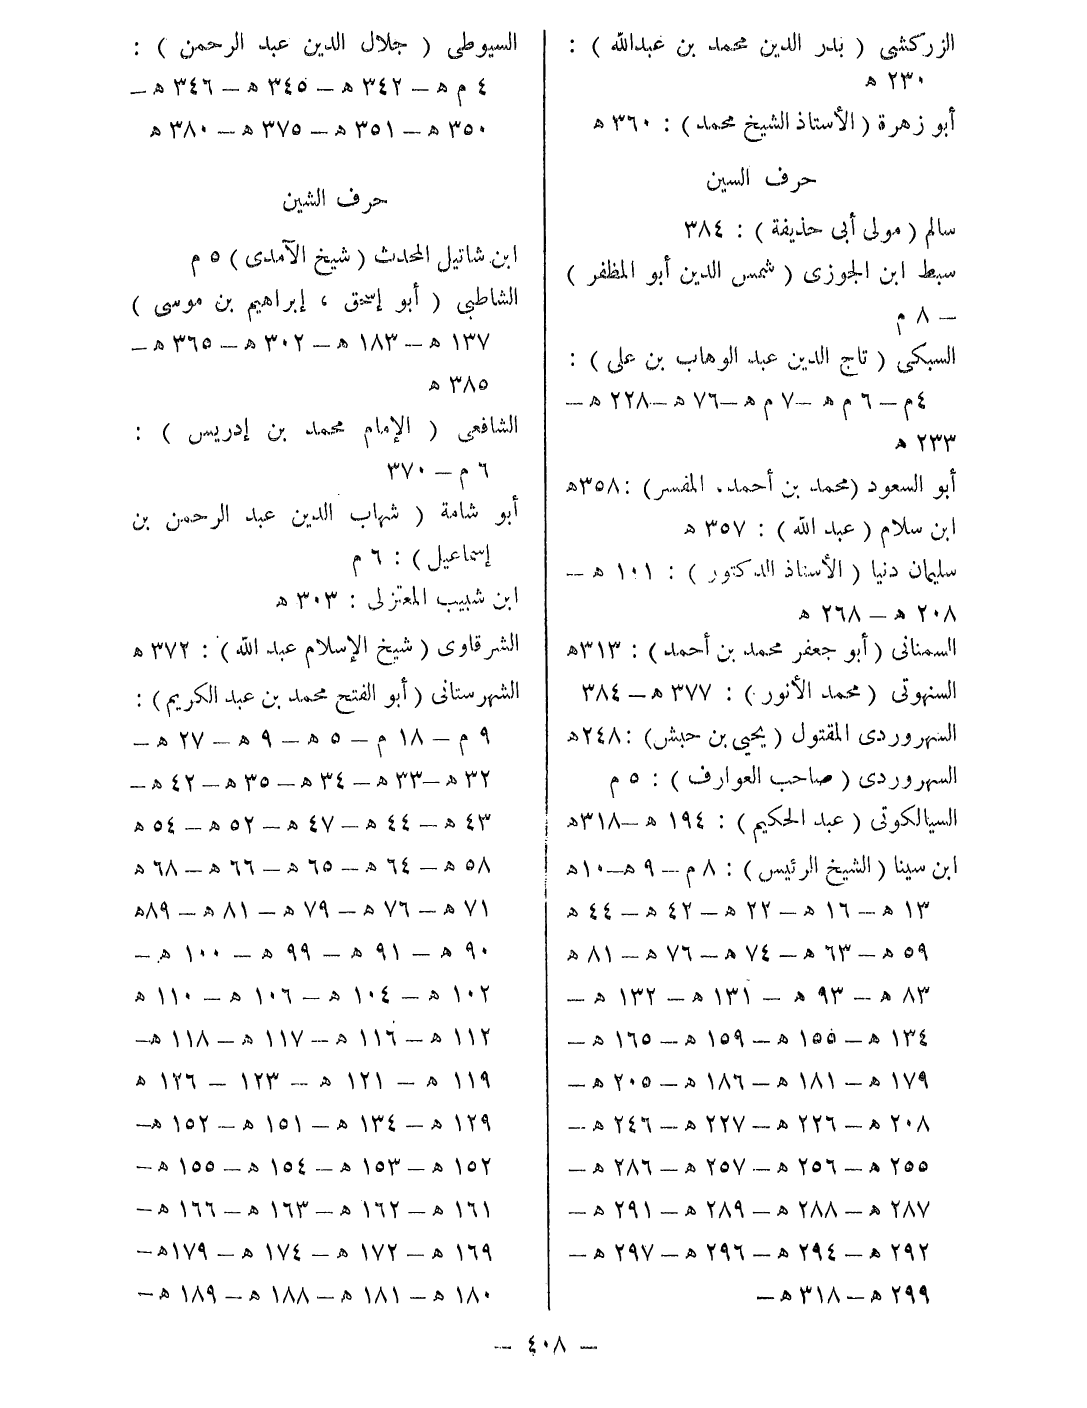 الزركشى ( بدر الدين محمد بن عبدالله ) :
٢٣٠ ه
أبو زهرة ( الأستاذ الشيخ محمد ) : ٣٦٠ ه
حرف السين
سالم ( مولى أبى حذيفة ) : ٣٨٤
سبط ابن الجوزى ( شمس الدين أبو المظفر )
— ٨ م
السبكى ( تاج الدين عبد الوهاب بن على ) :
٤م — ٦ م ه —٧ م ه —٧٦ ه —٢٢٨ ه —
٢٣٣ ه
أبو السعود (محمد بن أحمد. المفسر) :٣٥٨ه
ابن سلام ( عبد الله ) : ٣٥٧ ه
سليمان دنيا ( الأستاذ الدكتور ) : ١٠١ ه —
٢٠٨ ه — ٢٦٨ ه
السمنانى ( أبو جعفر محمد بن أحمد ) : ٣١٣ه
السنهوتى ( محمد الأنور ) : ٣٧٧ ه — ٣٨٤
السهروردى المقتول ( يحيى بن حبش) :٢٤٨ه
السهروردى ( صاحب العوارف ) : ٥ م
السيالكوتى ( عبد الحكيم ) : ١٩٤ ه —٣١٨ه
ابن سينا ( الشيخ الرئيس ) : ٨ م — ٩ ه—١٠ه
١٣ ه — ١٦ ه — ٢٢ ه — ٤٢ ه — ٤٤ ه
٥٩ ه — ٦٣ ه — ٧٤ ه — ٧٦ ه — ٨١ ه
٨٣ ه — ٩٣ ه — ١٣١ ه — ١٣٢ ه —
١٣٤ ه — ١٥٥ ه — ١٥٩ ه — ١٦٥ ه —
١٧٩ ه — ١٨١ ه — ١٨٦ ه — ٢٠٥ ه —
٢٠٨ ه — ٢٢٦ ه — ٢٢٧ ه — ٢٤٦ ه —
٢٥٥ ه — ٢٥٦ ه — ٢٥٧ ه — ٢٨٦ ه —
٢٨٧ ه — ٢٨٨ ه — ٢٨٩ ه — ٢٩١ ه —
٢٩٢ ه — ٢٩٤ ه — ٢٩٦ ه — ٢٩٧ ه —
٢٩٩ ه — ٣١٨ ه —
السيوطى ( جلال الدين عبد الرحمن ) :
٤ م ه — ٣٤٢ ه — ٣٤٥ ه — ٣٤٦ ه —
٣٥٠ ه — ٣٥١ ه — ٣٧٥ ه — ٣٨٠ ه
حرف الشين
ابن شاتيل المحدث ( شيخ الآمدى ) ٥ م
الشاطبى ( أبو إسحق ، إبراهيم بن موسى )
١٣٧ ه — ١٨٣ ه — ٣٠٢ ه — ٣٦٥ ه —
٣٨٥ ه
الشافعى ( الإمام محمد بن إدريس ) :
٦ م — ٣٧٠
أبو شامة ( شهاب الدين عبد الرحمن بن
إسماعيل ) : ٦ م
ابن شبيب المعتزلى : ٣٠٣ ه
الشرقاوى ( شيخ الإسلام عبد الله ) : ٣٧٢ ه
الشهرستانى ( أبو الفتح محمد بن عبد الكريم ) :
٩ م — ١٨ م — ٥ ه — ٩ ه — ٢٧ ه —
٣٢ ه —٣٣ ه — ٣٤ ه — ٣٥ ه — ٤٢ ه —
٤٣ ه — ٤٤ ه — ٤٧ ه — ٥٢ ه — ٥٤ ه
٥٨ ه — ٦٤ ه — ٦٥ ه — ٦٦ ه — ٦٨ ه
٧١ ه — ٧٦ ه — ٧٩ ه — ٨١ ه — ٨٩ه
٩٠ ه — ٩١ ه — ٩٩ ه — ١٠٠ ه —
١٠٢ ه — ١٠٤ ه — ١٠٦ ه — ١١٠ ه
١١٢ ه — ١١٦ ه — ١١٧ ه — ١١٨ ه—
١١٩ ه — ١٢١ ه — ١٢٣ — ١٢٦ ه
١٢٩ ه — ١٣٤ ه — ١٥١ ه — ١٥٢ ه—
١٥٢ ه — ١٥٣ ه — ١٥٤ ه — ١٥٥ ه —
١٦١ ه — ١٦٢ ه — ١٦٣ ه — ١٦٦ ه —
١٦٩ ه — ١٧٢ ه — ١٧٤ ه — ١٧٩ه—
١٨٠ ه — ١٨١ ه — ١٨٨ ه — ١٨٩ ه —
— ٤٠٨ —